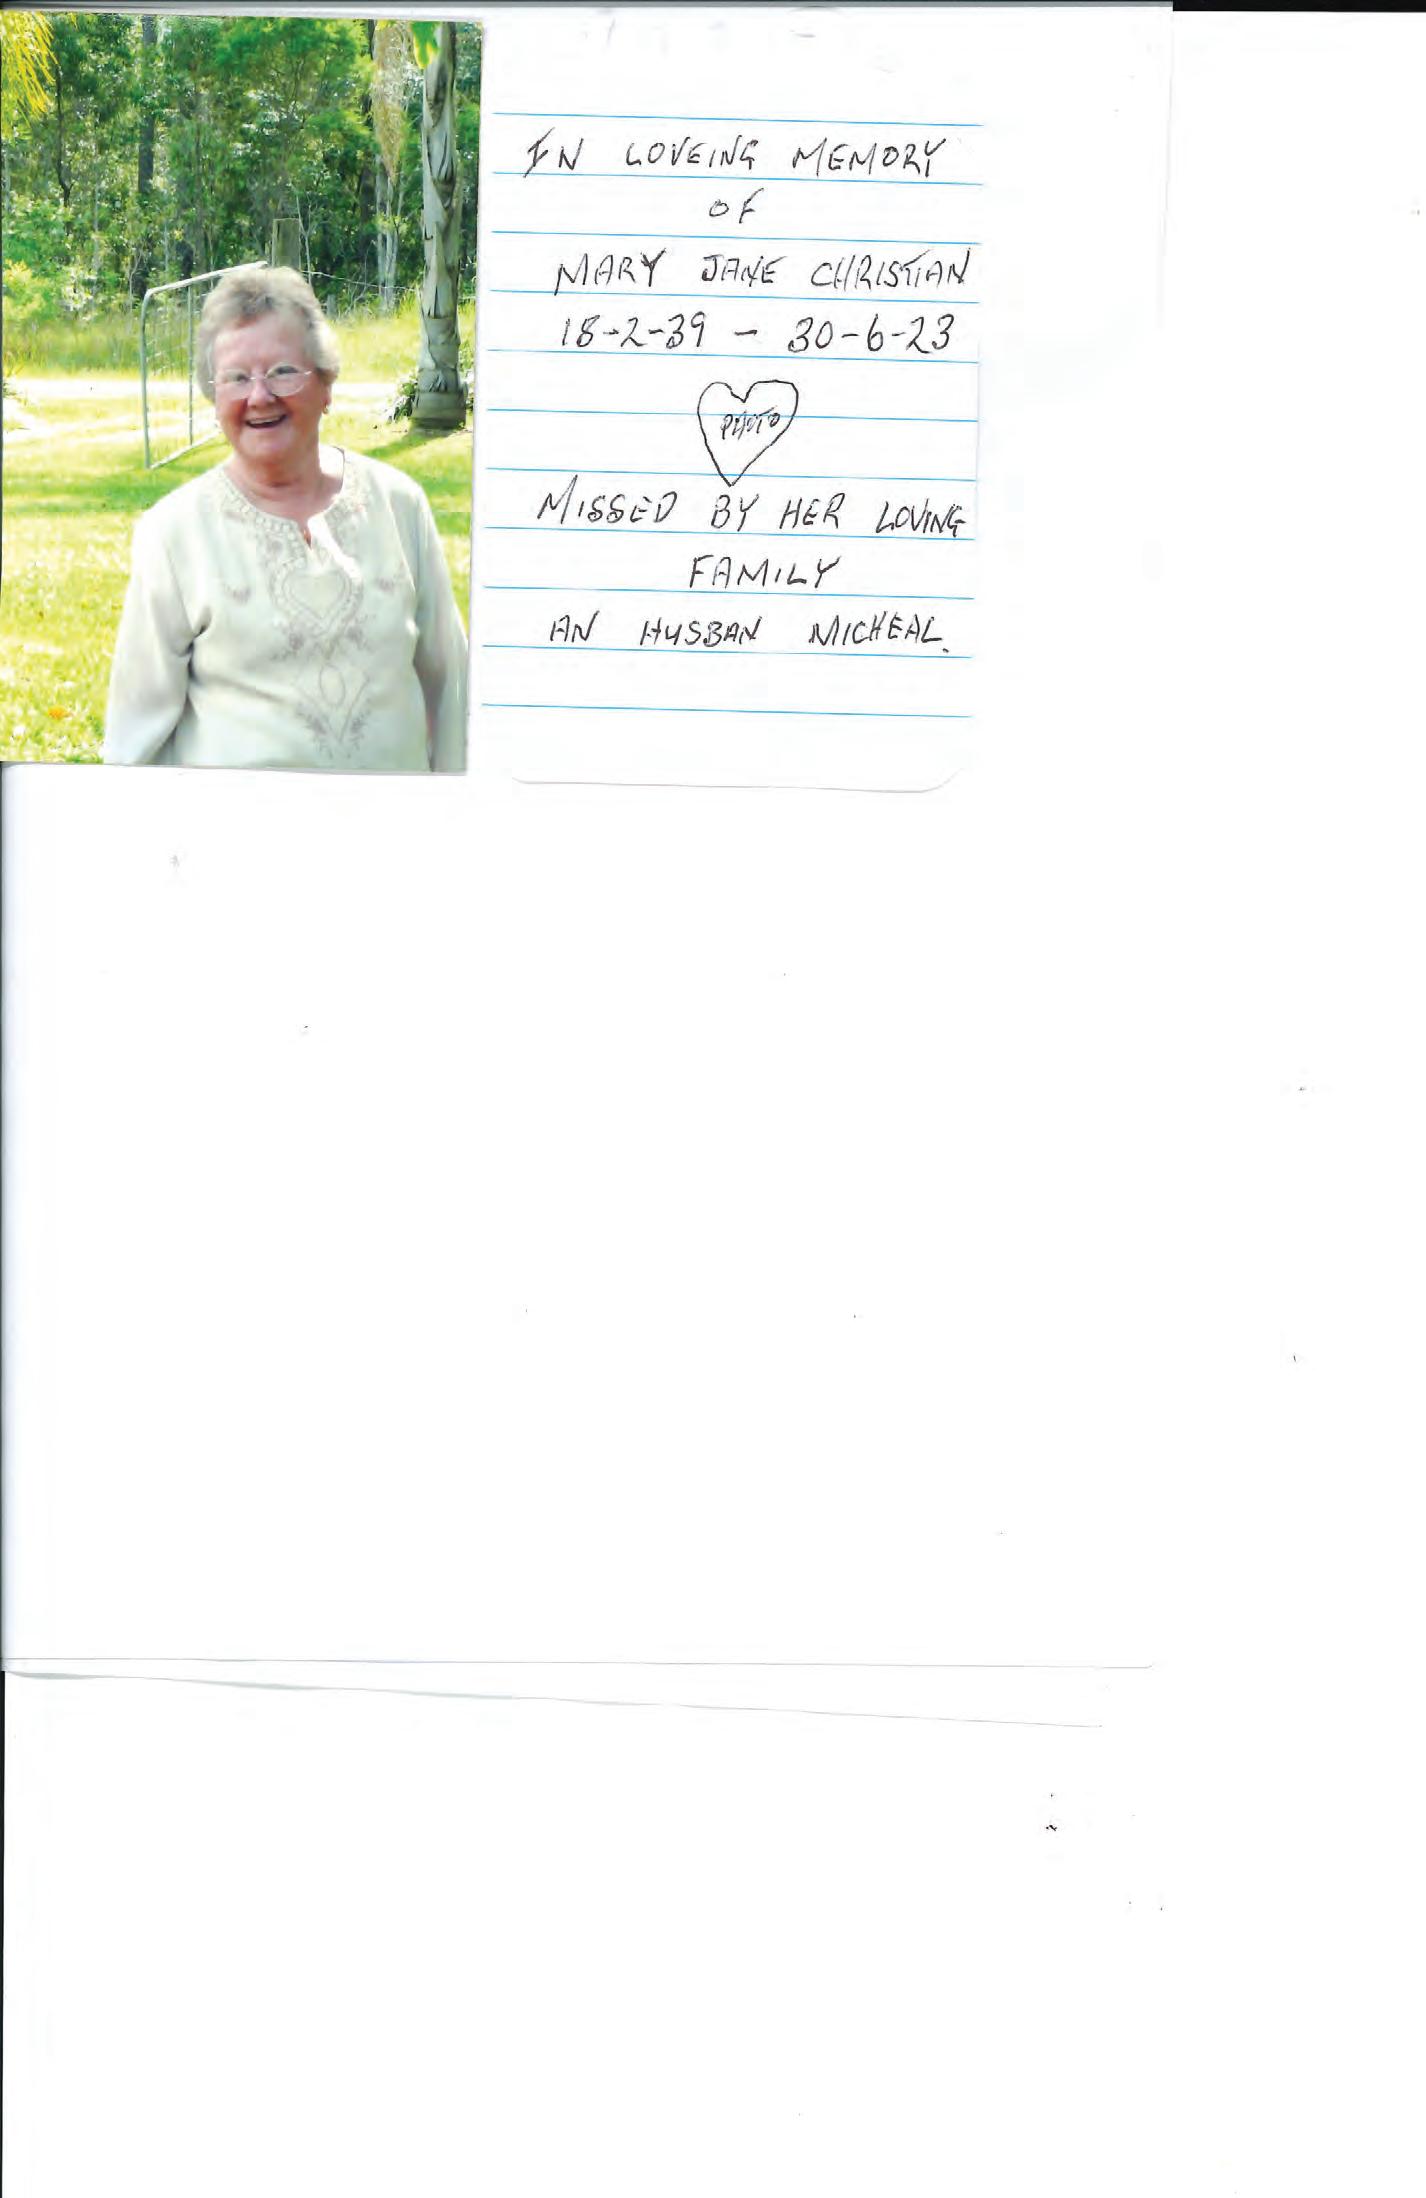 IN LOVEING MEMORY
OF
MARY JANE CHRISTIAN
18-2-39 - 30-6-23
PHOTO
MISSED BY HER LOVING
FAMILY
AN HUSBAN MICHEAL.